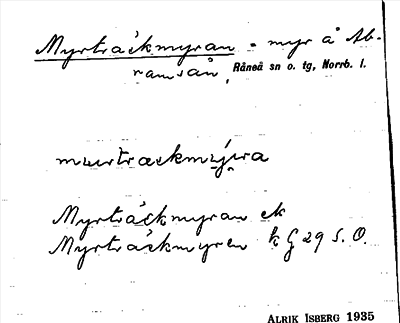 Myrträckmyran - myr å Ab-
ramsån, Råneå sn o. tg, Norrb. l.
Myrträckmyran ek
Myrträckmyren k G 29 S. O.
ALRIK ISBERG 1935